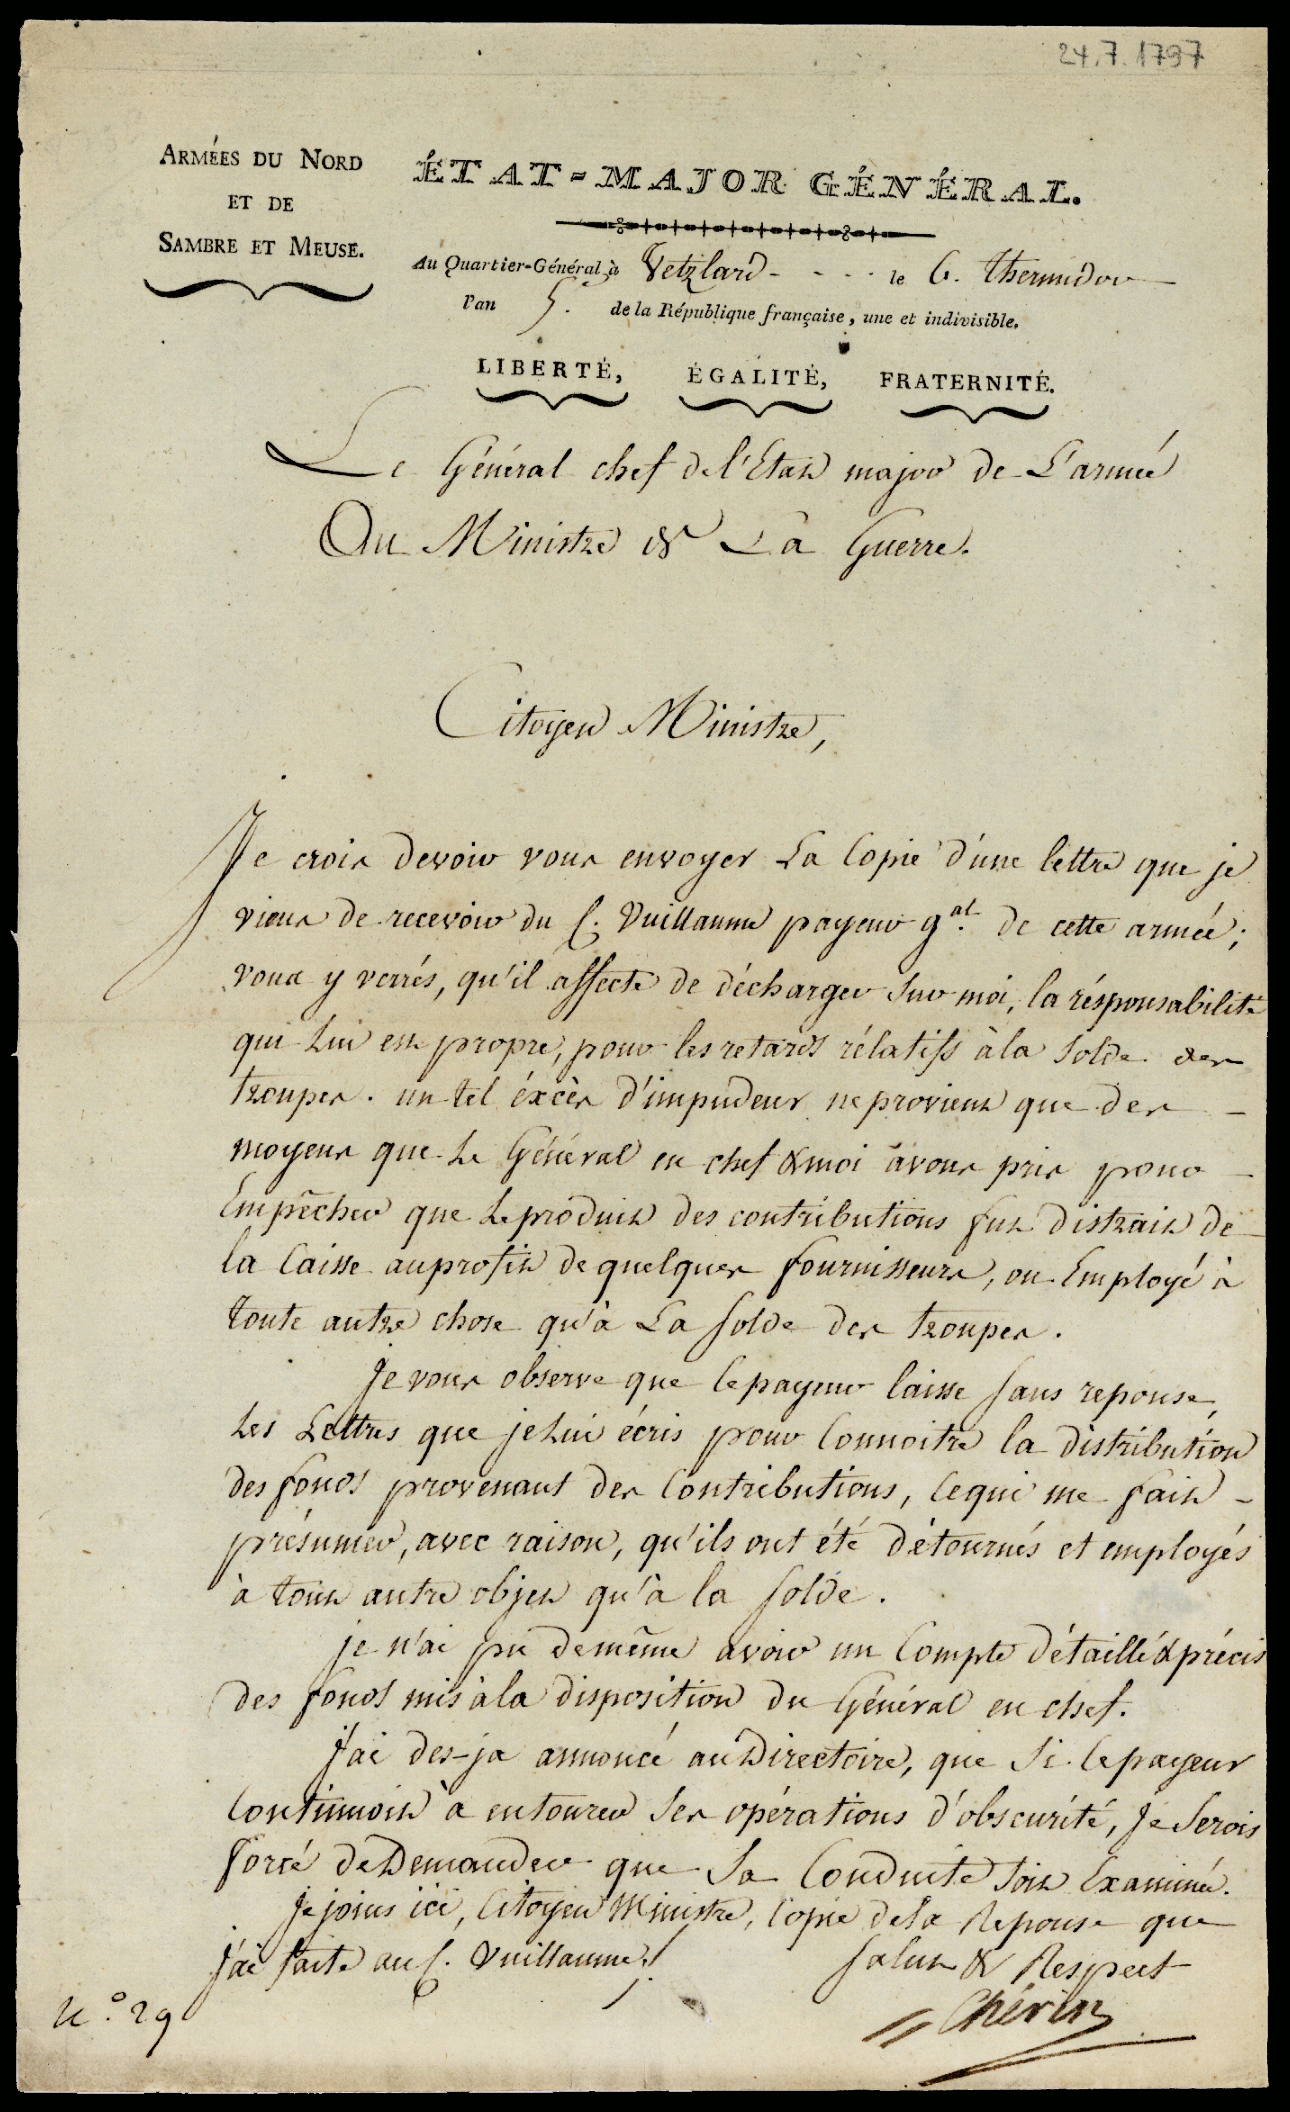 24.7.1797
ARMÉES DU NORD
ET DE
SAMBRE ET MEUSE.
ÉTAT-MAJOR GÉNÉRAL.
Au Quartier-Général à Vetzlard - - - - le 6. thermidor
l'an 5.e de la République française, une et indivisible.
LIBERTÉ, ÉGALITÉ, FRATERNITÉ.
Le Général chef de l'Etat major de L'armée
Au Ministre de La Guerre.
Citoyen Ministre,
Je crois devoir vous envoyer La Copie d'une lettre que je
viens de recevoir du C. Vuillaume payeur g.al de cette armée;
vous y verrés, qu'il affecte de décharger sur moi, la résponsabilité
qui Lui est propre, pour les retards rélatifs à la Solde des
troupes. un tel éxcès d'impudeur ne provient que des -
moyens que Le Général en chef & moi avons pris pour -
Empêcher que Le produit des contributions fut distrait de
la Caisse au profit de quelques fournisseurs, ou Employé à
toute autre chose qu'à La Solde des troupes.
Je vous observe que le payeur laisse sans reponse,
Les Lettres que je Lui écris pour Connoitre la distribution
des fonds provenant des Contributions, ce qui me fait -
présumer, avec raison, qu'ils ont été détournés et employés
à tout autre objet qu'à la Solde.
je n'ai pu de même avoir un Compte détaillé & précis
des fonds mis à la disposition du Général en chef.
J'ai des-ja annoncé au Directoire, que Si le payeur
Continuoit à entourer Ses opérations d'obscurité, Je Serois
forcé de Demander que Sa Conduite Soit Examinée.
Je joins ici, Citoyen Ministre, Copie de la Reponse que
j'ai faite au C. Vuillaume.
Salut & Respect
Chérin
N.o 29